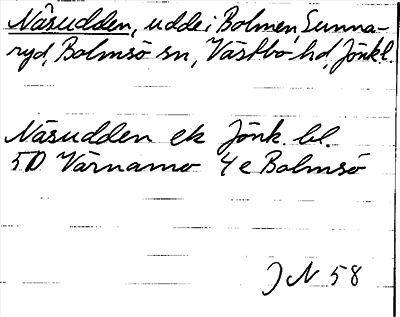 Näsudden, udde i Bolmen, Sunna-
ryd, Bolmsö sn, Västbo hd, Jönk. l.
Näsudden ek Jönk. bl.
5D Värnamo 4e Bolmsö
J N 58